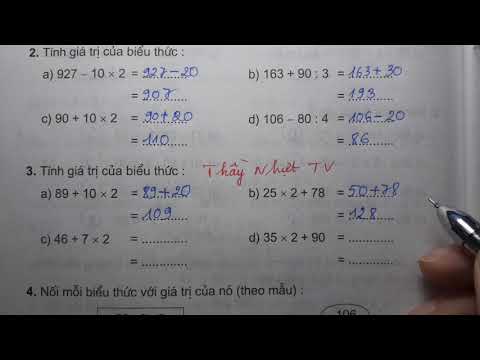 2. Tính giá trị của biểu thức :
a) 927 – 10 × 2 = 927 – 20
b) 163 + 90 : 3 = 163 + 30
= 907
= 193
c) 90 + 10 × 2 = 90 + 20
d) 106 – 80 : 4 = 106 – 20
= 110
= 86
3. Tính giá trị của biểu thức : Thầy Nhựt TV
a) 89 + 10 × 2 = 89 + 20
b) 25 × 2 + 78 = 50 + 78
= 109
= 128
c) 46 + 7 × 2 = .............
d) 35 × 2 + 90 = .............
= .............
= .............
4. Nối mỗi biểu thức với giá trị của nó (theo mẫu) :
106